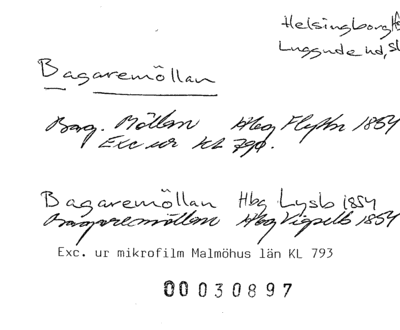 Helsingborg
Luggude hd, sk
Bagaremöllan
Bag. Möllan Hbg Flyfbr 1854
Exc ur KL 790.
Bagaremöllan Hbg Lysb 1854
Bagaremöllan Hbg Vigselb 1854
Exc. ur mikrofilm Malmöhus län KL 793
00030897